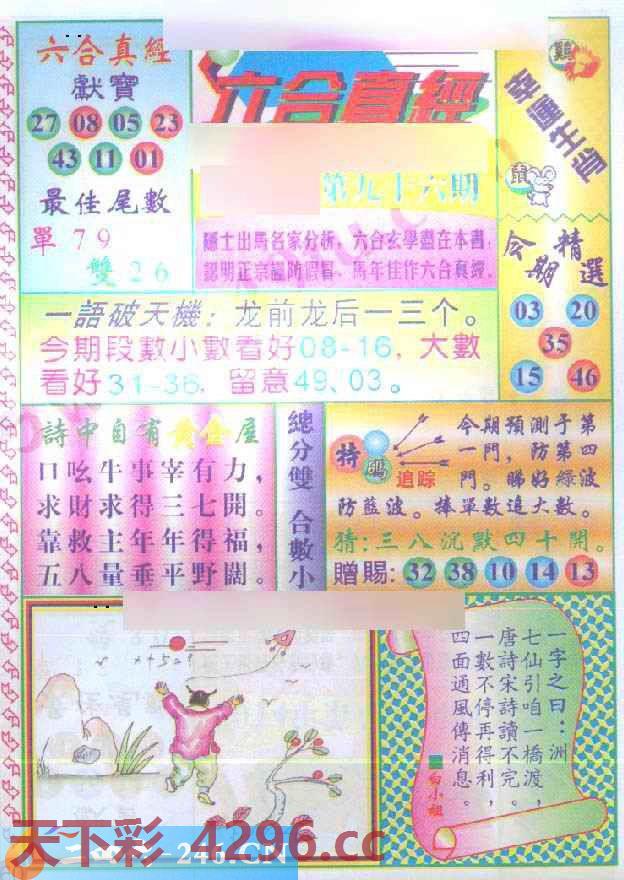 六合真經
獻寶
27 08 05 23
43 11 01
最佳尾數
單 7 9
雙 2 6
六合真經
第九十六期
隱士出馬名家分析，六合玄學盡在本書，
認明正宗謹防假冒、馬年佳作六合真經。
幸運生肖
鷄
鼠
今期精選
03 20
35
15 46
一語破天機：龙前龙后一三个。
今期段數小數看好08-16，大數
看好31-36，留意49、03。
詩中自有黃金屋
口吆牛事宰有力，
求財求得三七開。
靠救主年年得福，
五八量垂平野闊。
總分雙 合數小
特碼追踪
今期預測于第
一門，防第四
門。睇好綠波
防藍波。捧單數追大數。
猜：三八沉默四十開。
贈賜：32 38 10 14 13
一字之曰：洲
七仙引咱一橋渡，
唐詩宋詩讀不完。
一數不停再得利，
四面通風傳消息。
白小姐
天下彩 4296.cc
246.CN